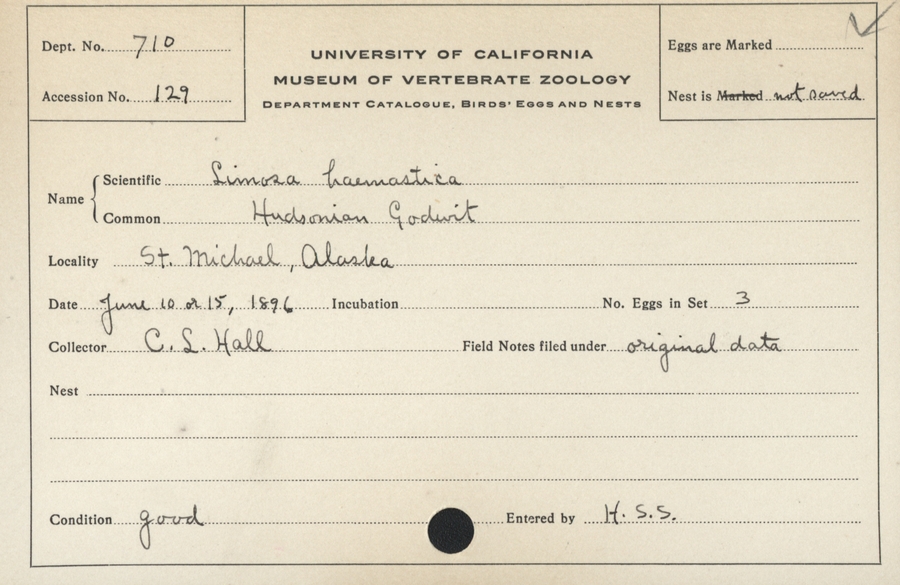 Dept. No. 710
Accession No. 129
UNIVERSITY OF CALIFORNIA
MUSEUM OF VERTEBRATE ZOOLOGY
DEPARTMENT CATALOGUE, BIRDS' EGGS AND NESTS
Eggs are Marked
Nest is Marked not saved
Name
Scientific Limosa haemastica
Common Hudsonian Godwit
Locality St. Michael, Alaska
Date June 10 or 15, 1896 Incubation No. Eggs in Set 3
Collector C. L. Hall Field Notes filed under original data
Nest
Condition good Entered by H. S. S.